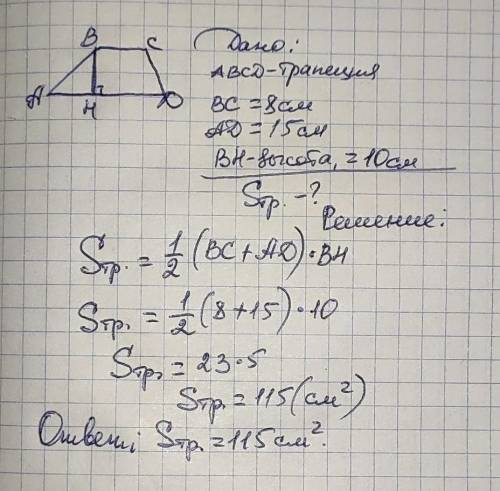 B C
A H D
Дано:
ABCD-трапеция
BC = 8см
AD = 15см
BH-высота, = 10см
Sтр. - ?
Решение:
Sтр. = 1/2 (BC + AD) · BH
Sтр. = 1/2 (8 + 15) · 10
Sтр. = 23 · 5
Sтр. = 115 (см²)
Ответ: Sтр. = 115 см².